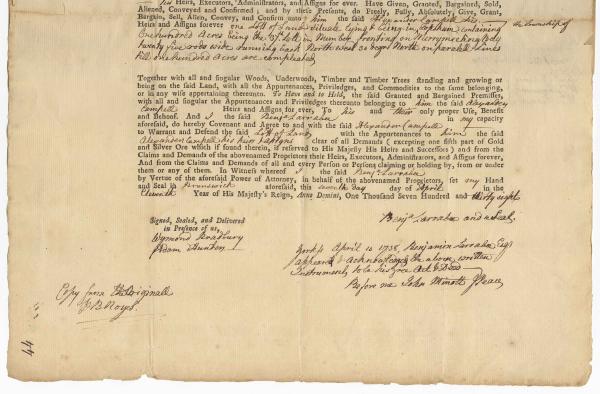 his Heirs, Executors, Administrators, and Assigns for ever. Have Given, Granted, Bargained, Sold,
Aliened, Conveyed and Confirmed, and by these Presents, do Freely, Fully, Absolutely, Give, Grant,
Bargain, Sell, Alien, Convey, and Confirm unto him the said Alexander Campell his
Heirs and Assigns forever one Lott of Land situate lying & being in the township of Topsham containing
One hundred Acres being the 37 Lott in Number fronting on Merrymeeting Bay
twenty five rods wide running back North west 30 degs North on paralel Lines
till one hundred Acres are compleated
Together with all and singular Woods, Underwoods, Timber and Timber Trees standing and growing or
being on the said Land, with all the Appurtenances, Priviledges, and Commodities to the same belonging,
or in any wise appertaining thereunto. To Have and to Hold, the said Granted and Bargained Premisses,
with all and singular the Appurtenances and Priviledges thereunto belonging to him the said Alexander
Campell Heirs and Assigns for ever, To his and their only proper Use, Benefit
and Behoof. And I the said Benj: Larraba in my capacity
aforesaid, do hereby Covenant and Agree to and with the said Alexander Campell
to Warrant and Defend the said Lott of Land with the Appurtenances to him the said
Alexander Campell his heirs & assigns clear of all Demands (excepting one fifth part of Gold
and Silver Ore which if found therein, is reserved to His Majesty His Heirs and Successors) and from the
Claims and Demands of the abovenamed Proprietors their Heirs, Executors, Administrators, and Assigns forever,
And from the Claims and Demands of all and every Person or Persons claiming or holding by, from or under
them or any of them. In Witness whereof I the said Benj: Larraba
by Vertue of the aforesaid Power of Attorney, in behalf of the abovenamed Proprietors, set my Hand
and Seal in Brunswick aforesaid, this seventh day day of April in the
Eleventh Year of His Majesty's Reign, Anno Domini, One Thousand Seven Hundred and thirty eight
Benj: Larraba and a Seal
Signed, Sealed, and Delivered
in Presence of us,
Wymond Bradbury
Adam Hunton
York ss April 10 1738, Benjamin Larraba Esq
appeared & acknowledged the above written
Instrument to be his free Act & Deed
Before me John Minott J Peace
Copy from the Originall
44